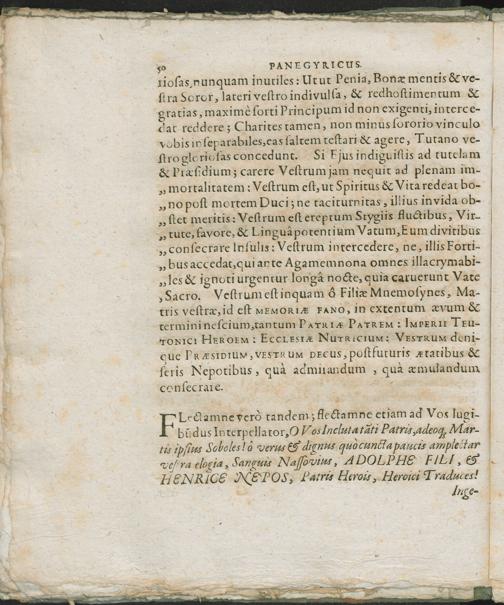 50 PANEGYRICUS.
riosas, nunquam inutiles: Ut ut Penia, Bonæ mentis & ve-
stra Soror, lateri vestro indivulsa, & redhostimentum &
gratias, maximè forti Principum id non exigenti, interce-
dat reddere; Charites tamen, non minus sororio vinculo
vobis inseparabiles, eas saltem testari & agere, Tutano ve-
stro gloriosas concedunt. Si Ejus indiguistis ad tutelam
& Præsidium; carere Vestrum jam nequit ad plenam im-
„ mortalitatem: Vestrum est, ut Spiritus & Vita redeat bo-
„ no post mortem Duci; ne taciturnitas, illius invida ob-
„ stet meritis: Vestrum est ereptum Stygiis fluctibus, Vir-
„ tute, favore, & Linguâ potentium Vatum, Eum divitibus
„ consecrare Insulis: Vestrum intercedere, ne, illis Forti-
„ bus accedat, qui ante Agamemnona omnes illacrymabi-
„ les & ignoti urgentur longâ nocte, quia caruerunt Vate
„ Sacro. Vestrum est inquam ô Filiæ Mnemosynes, Ma-
tris vestræ, id est MEMORIÆ FANO, in extentum ævum &
termini nescium, tantum PATRIÆ PATREM: IMPERII TEU-
TONICI HEROEM: ECCLESIÆ NUTRICIUM: VESTRUM deni-
que PRÆSIDIUM, VESTRUM DECUS, postfuturis ætatibus &
seris Nepotibus, quà admirandum, quà æmulandum
consecrare.
FLectamne verò tandem; flectamne etiam ad Vos lugi-
bũdus Interpellator, O Vos Incluta tãti Patris, adeoq, Mar-
tis ipsius Soboles! ô verus & dignus quò cuncta paucis amplectar
vestra elogia, Sanguis Nassovius, ADOLPHE FILI, &
HENRICE NEPOS, Patris Herois, Heroici Traduces!
Inge-